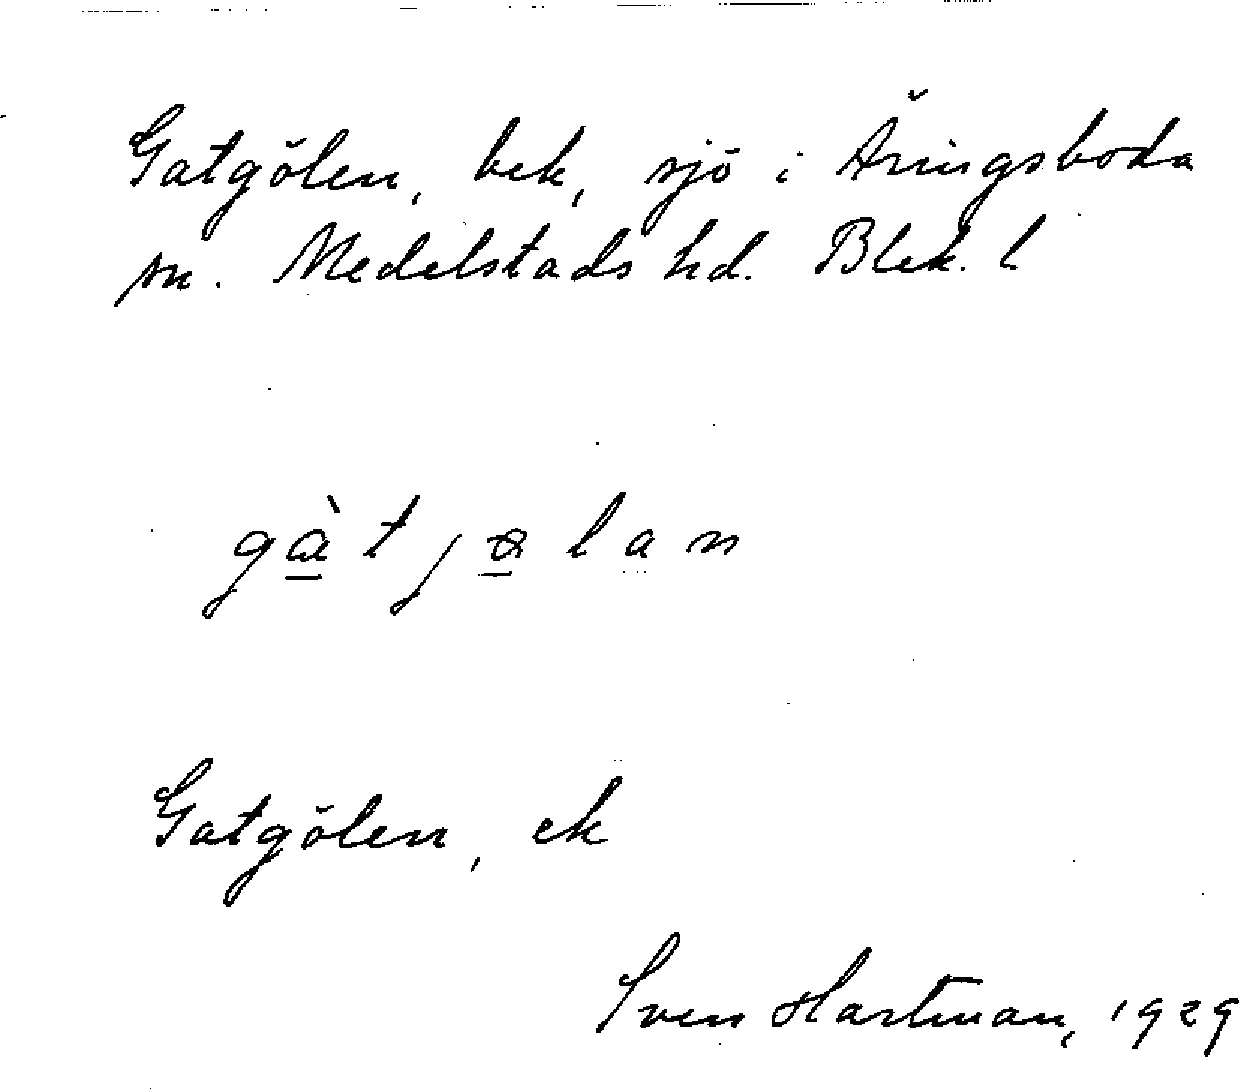 Gatgölen, bek, sjö i Åringsboda
sn. Medelstads hd. Blek. l
gàtjɵlan
Gatgölen, ek
Sven Hartman, 1929